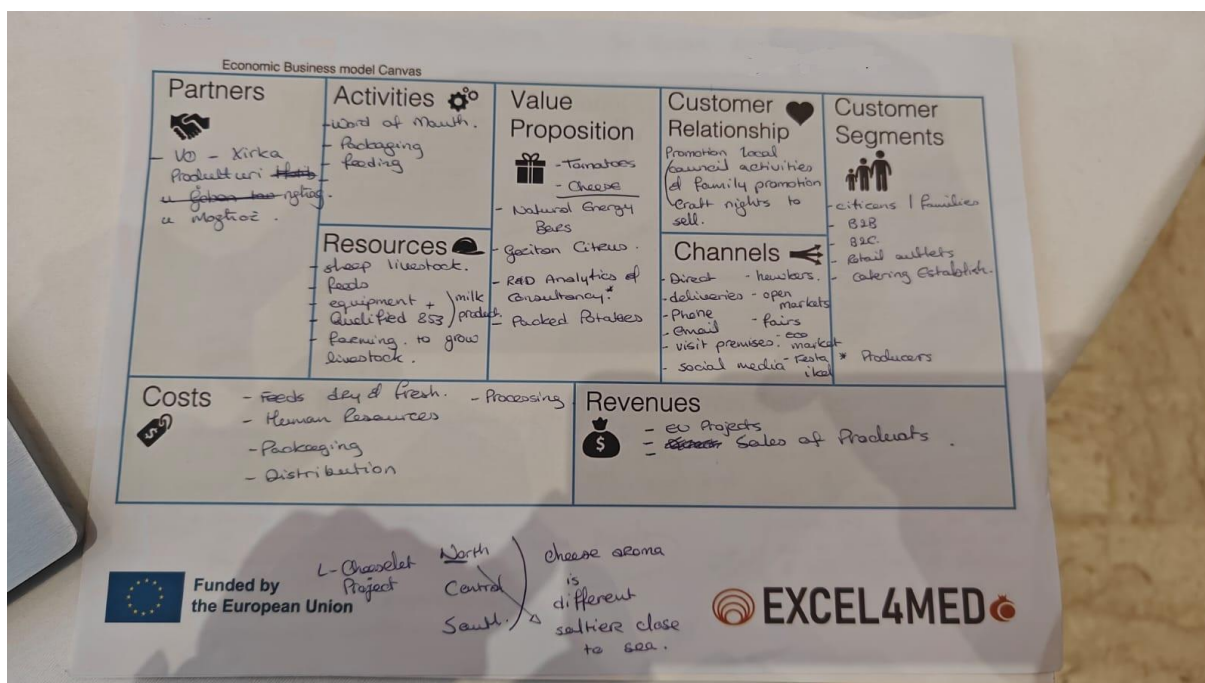 Economic Business model Canvas
Partners
- VO - Xirka
Produtturi
u
u Mogħoż.
Activities
- Word of Mouth.
- Packaging
- feeding
Resources
- sheep livestock.
- feeds
- equipment + milk
- Qualified 853 product
- farming to grow
livestock.
Value
Proposition
- Tomatoes
- Cheese
- Natural Energy
Bars
- Gozitan Citrus.
- R&D Analytics &
Consultancy.*
- Packed Potatoes
Customer
Relationship
Promotion local
council activities
& family promotion
Craft nights to
sell.
Channels
- Direct - hawkers.
- deliveries - open
markets
- Phone
- email - fairs
- visit premises. - eco market
- social media - Festa
ikel
Customer
Segments
- citizens / families
- B2B
- B2C.
- Retail outlets
- catering Establish.
* Producers
Costs
- Feeds dry & fresh. - Processing
- Human Resources
- Packaging
- Distribution
Revenues
- EU Projects
- Sales of Products.
-
Funded by
the European Union
L-Cheeselet
Project
North
Central
South.
cheese aroma
is
different
saltier close
to sea.
EXCEL4MED